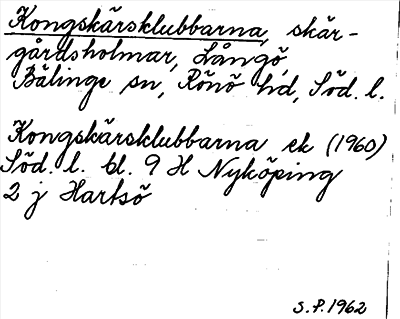 Kongskärsklubbarna, skär-
gårdsholmar, Långö,
Bälinge sn, Rönö hd, Söd. l.
Kongskärsklubbarna ek (1960)
Söd. l. bl. 9 H Nyköping
2 j Hartsö
S.P. 1962